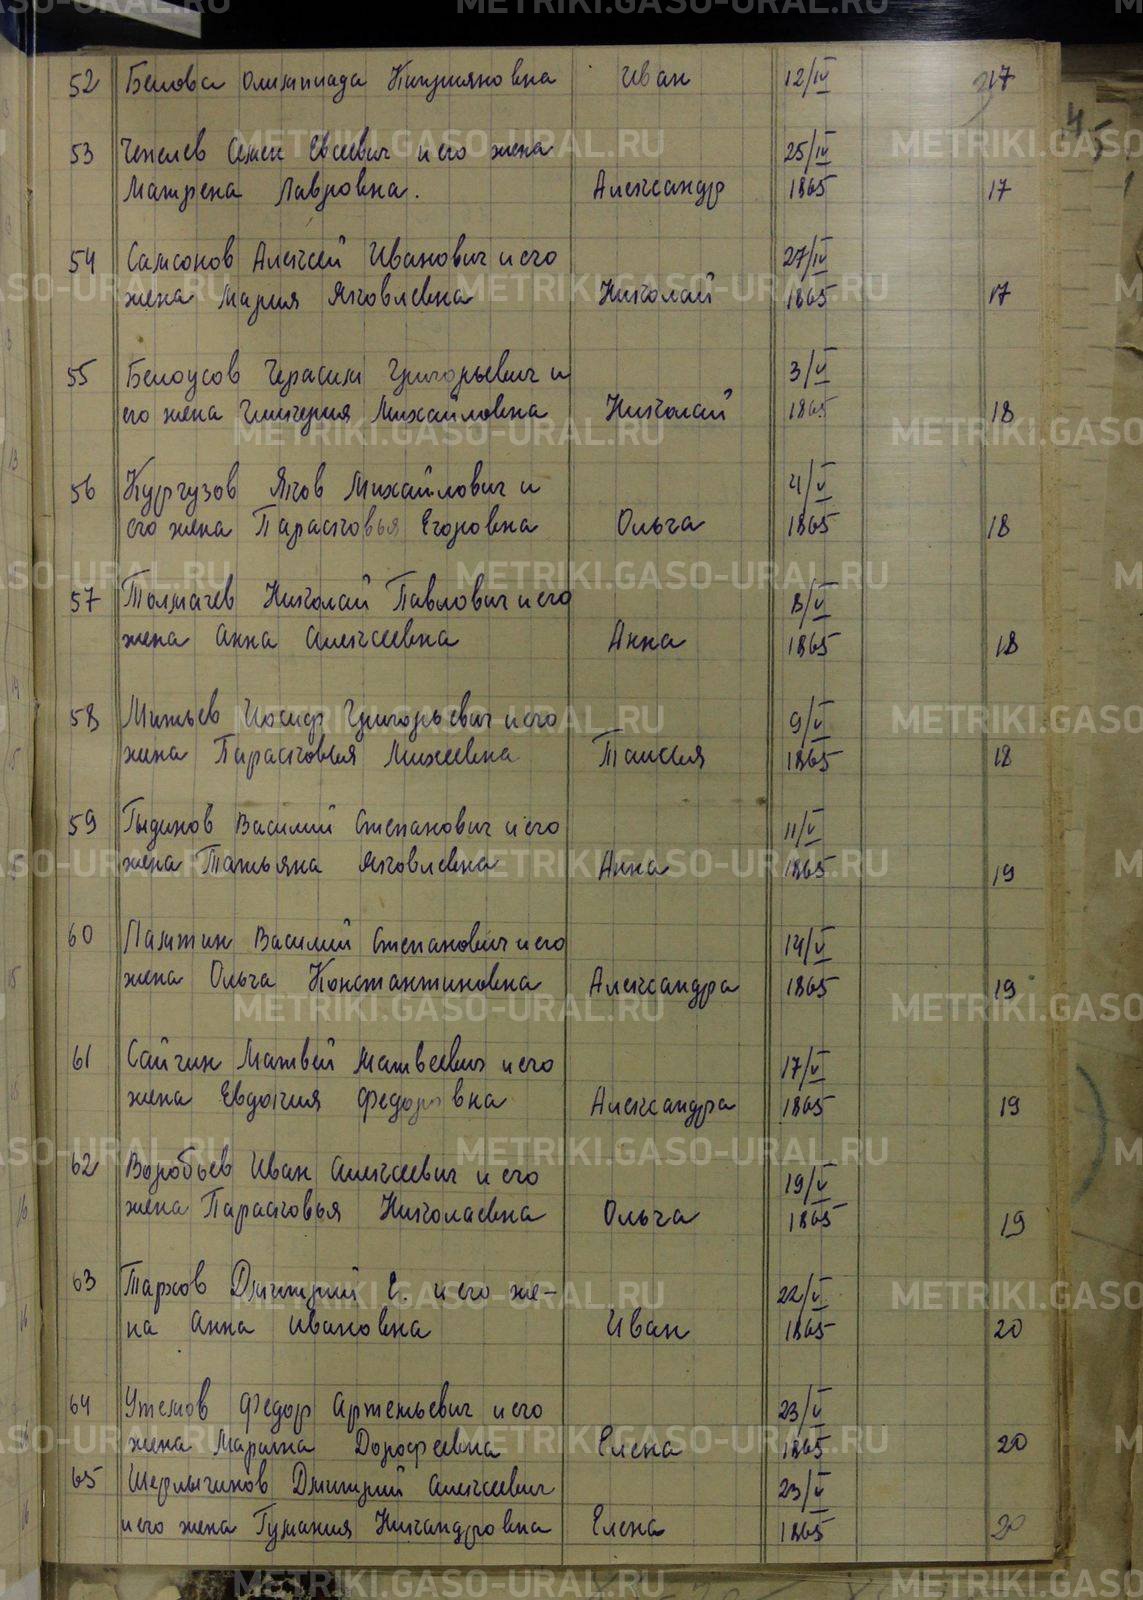 52 Белова Олимпиада Киприяновна Иван 12/IV 17
53 Чепелев Семен Евсеевич и его жена 25/IV
Матрена Лавровна. Александр 1865 17
54 Самсонов Алексей Иванович и его 27/IV
жена Мария Яковлевна Николай 1865 17
55 Белоусов Герасим Григорьевич и 3/V
его жена Гликерия Михайловна Николай 1865 18
56 Кургузов Яков Михайлович и 4/V
его жена Парасковья Егоровна Ольга 1865 18
57 Толмачев Николай Павлович и его 8/V
жена Анна Алексеевна Анна 1865 18
58 Митьев Иосиф Григорьевич и его 9/V
жена Парасковья Михеевна Таисия 1865 18
59 Гыдинов Василий Степанович и его 11/V
жена Татьяна Яковлевна Анна 1865 19
60 Василий Степанович и его 14/V
жена Ольга Константиновна Александра 1865 19
61 Сайгин Матвей Матвеевич и его 17/V
жена Евдокия Федоровна Александра 1865 19
62 Воробьев Иван Алексеевич и его 19/V
жена Парасковья Николаевна Ольга 1865 19
63 Тархов Дмитрий Е. и его же- 22/V
на Анна Ивановна Иван 1865 20
64 Утемов Федор Артемьевич и его 23/V
жена Марина Дорофеевна Елена 1865 20
65 Дмитрий Алексеевич 23/V
и его жена Никандровна Елена 1865 20
45
METRIKI.GASO-URAL.RU